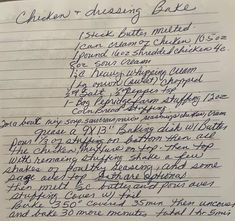 Chicken + dressing Bake
1 Stick Butter melted
1 can cream of chicken 10.5 oz
1 pound 16oz shredded chicken 4c.
8oz Sour Cream
1/2 c heavy whipping cream
1/2 onion chopped
Salt & Pepper
1- Bag Pepridge farm stuffing 12oz
Corn Bread Stuffing
In a bowl mix soup, sour cream,
grease a 9X13" Baking dish w/ butter
Pour 1/2 of stuffing on bottom then add
the chicken mixture on top - then top
with remaining stuffing shake a few
shakes of poultry Seasoning and some
Sage
then melt butter and pour over
stuffing cover w/ foil
Bake 350° covered 35 min then uncover
and bake 30 more minutes total 1 hr 5 min